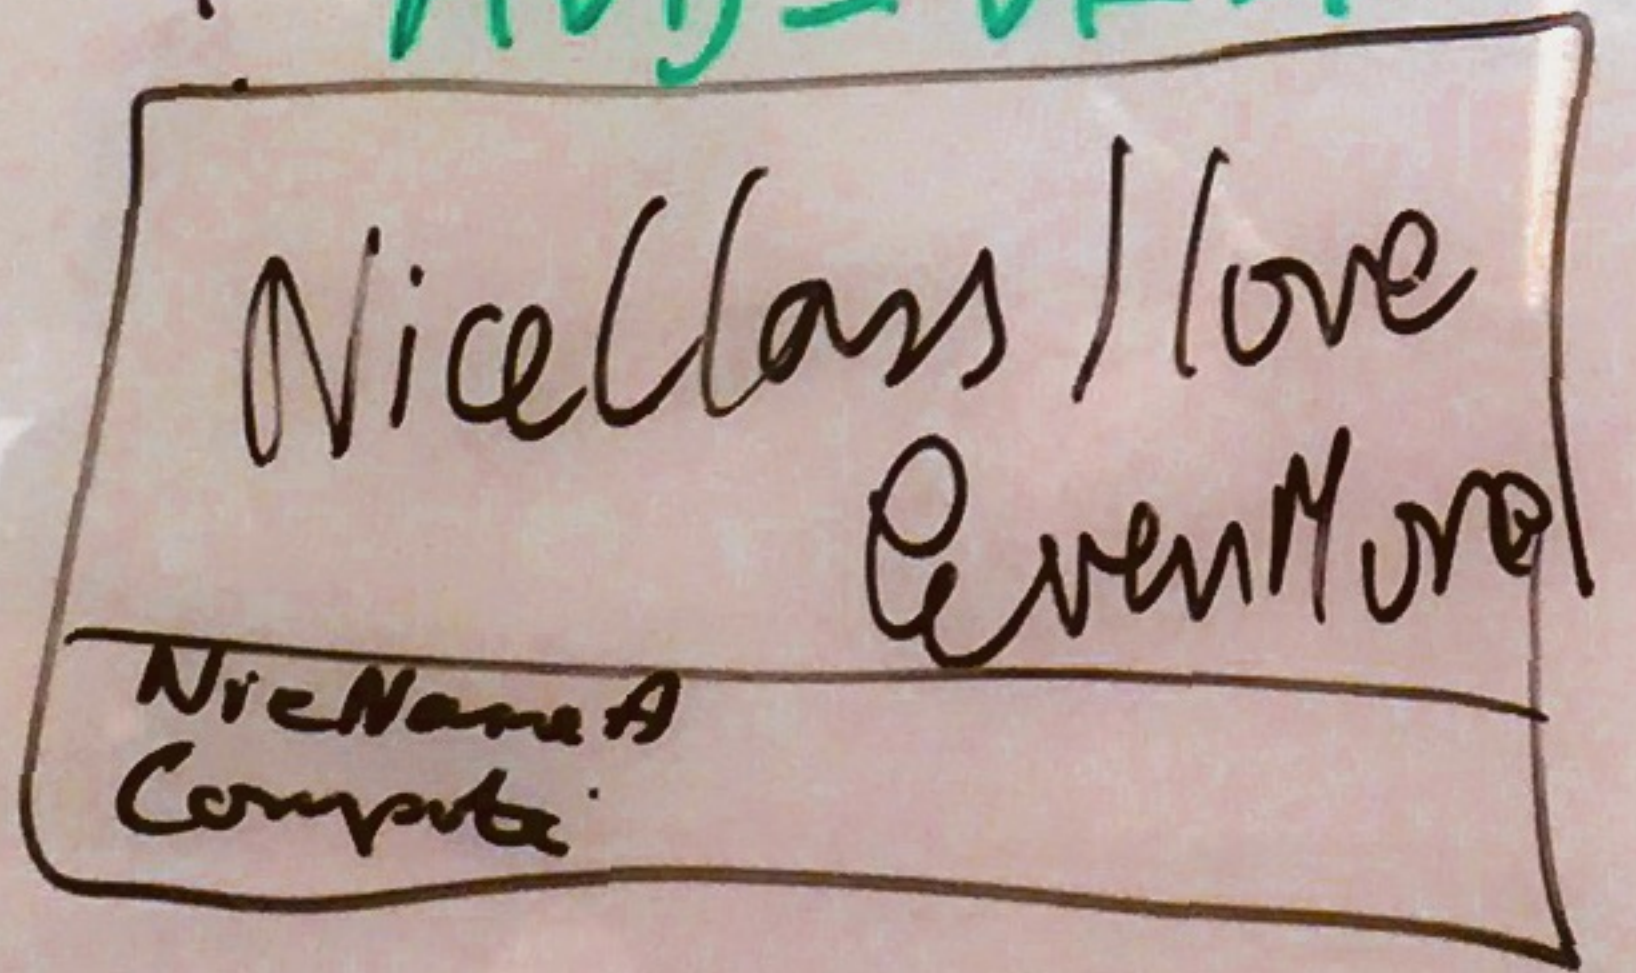 NiceClass I love
EvenMore
NiceNameA
Compute